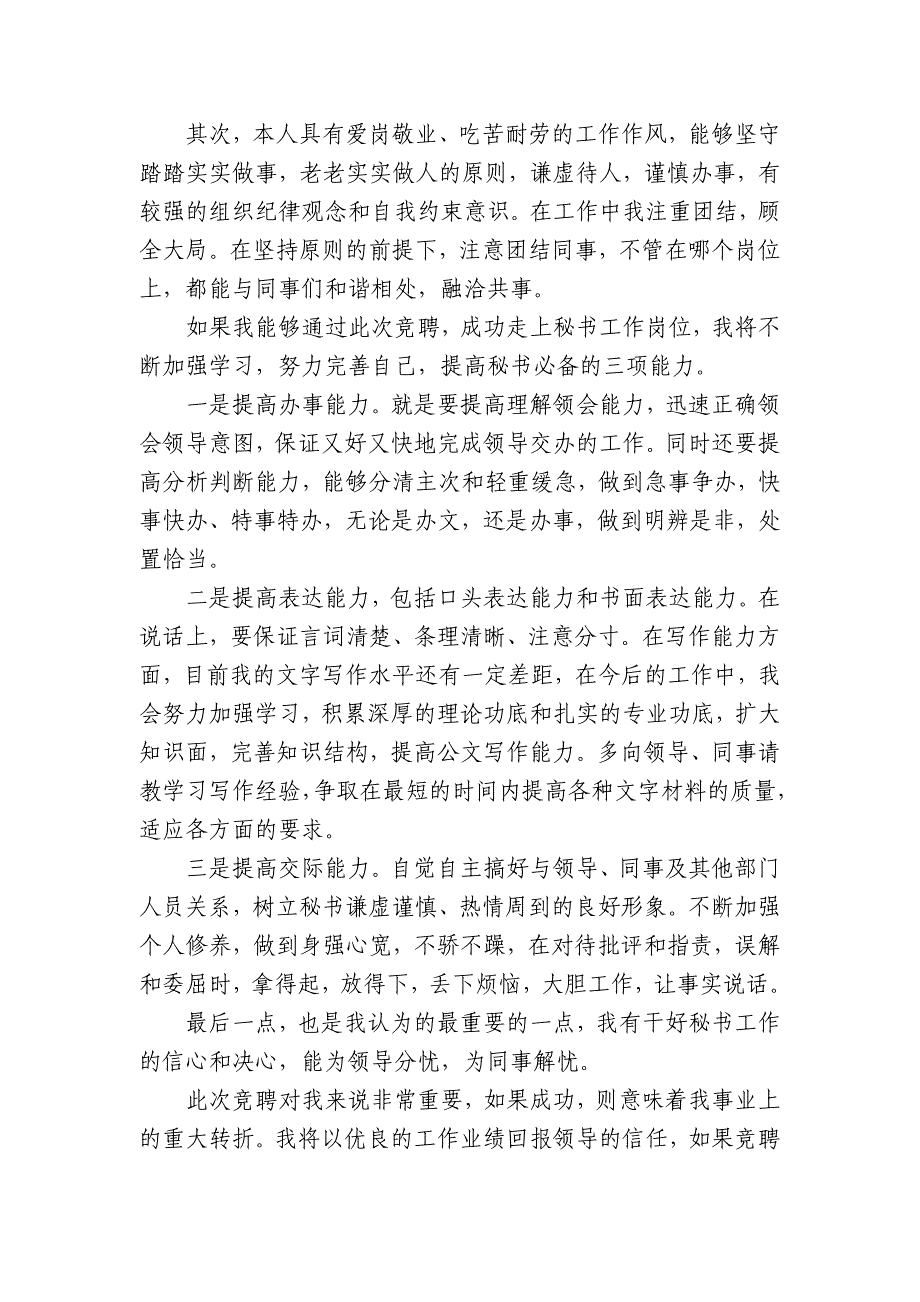 其次，本人具有爱岗敬业、吃苦耐劳的工作作风，能够坚守
踏踏实实做事，老老实实做人的原则，谦虚待人，谨慎办事，有
较强的组织纪律观念和自我约束意识。在工作中我注重团结，顾
全大局。在坚持原则的前提下，注意团结同事，不管在哪个岗位
上，都能与同事们和谐相处，融洽共事。
如果我能够通过此次竞聘，成功走上秘书工作岗位，我将不
断加强学习，努力完善自己，提高秘书必备的三项能力。
一是提高办事能力。就是要提高理解领会能力，迅速正确领
会领导意图，保证又好又快地完成领导交办的工作。同时还要提
高分析判断能力，能够分清主次和轻重缓急，做到急事争办，快
事快办、特事特办，无论是办文，还是办事，做到明辨是非，处
置恰当。
二是提高表达能力，包括口头表达能力和书面表达能力。在
说话上，要保证言词清楚、条理清晰、注意分寸。在写作能力方
面，目前我的文字写作水平还有一定差距，在今后的工作中，我
会努力加强学习，积累深厚的理论功底和扎实的专业功底，扩大
知识面，完善知识结构，提高公文写作能力。多向领导、同事请
教学习写作经验，争取在最短的时间内提高各种文字材料的质量，
适应各方面的要求。
三是提高交际能力。自觉自主搞好与领导、同事及其他部门
人员关系，树立秘书谦虚谨慎、热情周到的良好形象。不断加强
个人修养，做到身强心宽，不骄不躁，在对待批评和指责，误解
和委屈时，拿得起，放得下，丢下烦恼，大胆工作，让事实说话。
最后一点，也是我认为的最重要的一点，我有干好秘书工作
的信心和决心，能为领导分忧，为同事解忧。
此次竞聘对我来说非常重要，如果成功，则意味着我事业上
的重大转折。我将以优良的工作业绩回报领导的信任，如果竞聘